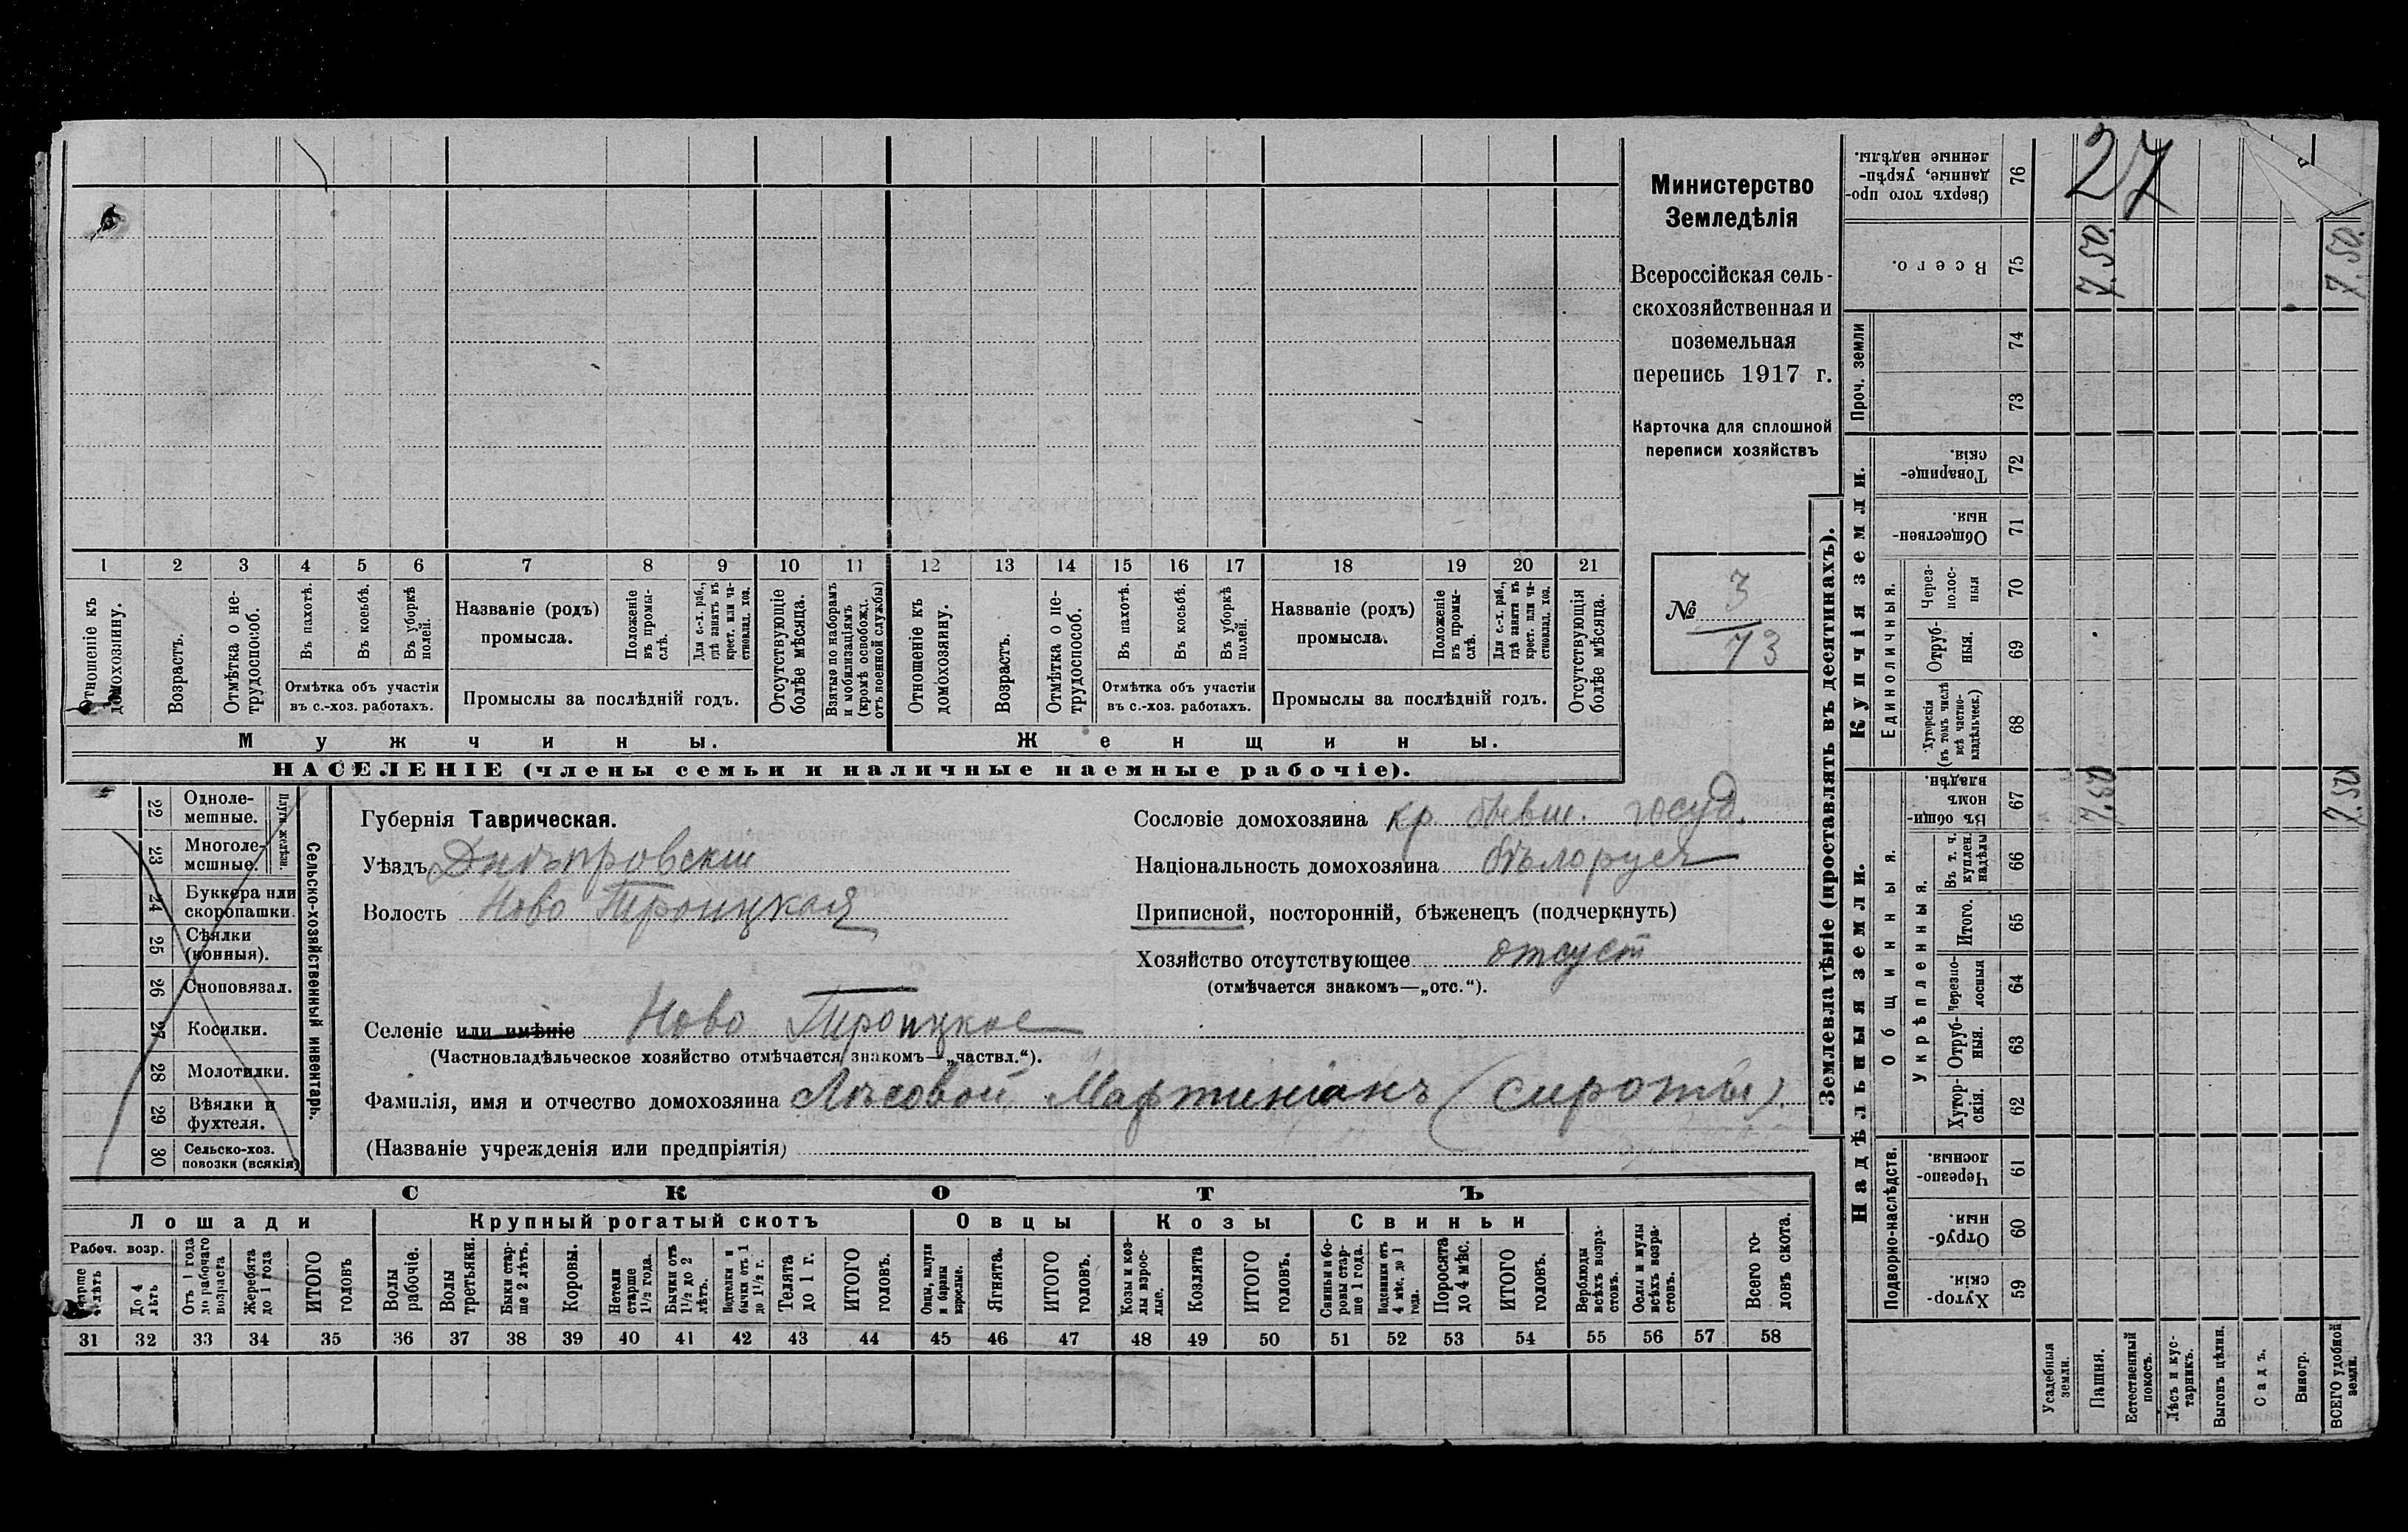 1 2 3 4 5 6 7 8 9 10 11 12 13 14 15 16 17 18 19 20 21
Отношеніе къ домохозяину.
Возрастъ.
Отмѣтка о не-
трудоспособ.
Въ пахотѣ.
Въ косьбѣ.
Въ уборкѣ полей.
Отмѣтка объ участіи
въ с.-хоз. работахъ.
Названіе (родъ)
промысла.
Положеніе въ промы-
слѣ.
Для с.-х. раб., гдѣ занятъ въ крест. или ча-
стновлад. хоз.
Промыслы за послѣдній годъ.
Отсутствующіе болѣе мѣсяца.
Взятые по наборамъ и мобилизаціямъ (кромѣ освобожд. отъ военной службы)
Отношеніе къ домохозяину.
Возрастъ.
Отмѣтка о не-
трудоспособ.
Въ пахотѣ.
Въ косьбѣ.
Въ уборкѣ полей.
Отмѣтка объ участіи
въ с.-хоз. работахъ.
Названіе (родъ)
промысла.
Положеніе въ промы-
слѣ.
Для с.-х. раб., гдѣ занята въ крест. или ча-
стновлад. хоз.
Промыслы за послѣдній годъ.
Отсутствующія болѣе мѣсяца.
Мужчины.
Женщины.
НАСЕЛЕНІЕ (члены семьи и наличные наемные рабочіе).
Министерство
Земледѣлія
Всероссійская сель-
скохозяйственная и
поземельная
перепись 1917 г.
Карточка для сплошной
переписи хозяйствъ
№ 3
73
Сельско-хозяйственный инвентарь.
22 Одноле-
мешные.
23 Многоле-
мешные.
24 Буккера или
скоропашки.
25 Сѣялки
(конныя).
26 Сноповязал.
27 Косилки.
28 Молотилки.
29 Вѣялки и
фухтеля.
30 Сельско-хоз.
повозки (всякія)
Губернія Таврическая.
Уѣздъ Днѣпровскій
Волость Ново Троицкая
Сословіе домохозяина кр. бывш. госуд.
Національность домохозяина бѣлорусъ
Приписной, посторонній, бѣженецъ (подчеркнуть)
Хозяйство отсутствующее отсуст
(отмѣчается знакомъ—„отс.“).
Селеніе или имѣніе Ново Троицкое
(Частновладѣльческое хозяйство отмѣчается знакомъ—„частвл.“).
Фамилія, имя и отчество домохозяина Лѣсовой Мартиніанъ (сироты).
(Названіе учрежденія или предпріятія)
СКОТЪ
Лошади
Крупный рогатый скотъ
Овцы
Козы
Свиньи
Рабоч. возр.
До 4 лѣтъ
Отъ 1 года до рабочаго возраста
Жеребята до 1 года
ИТОГО головъ
Волы рабочіе.
Волы третьяки.
Быки стар-
ше 2 лѣтъ.
Коровы.
Нетели старше 1½ года.
Бычки отъ 1½ до 2 лѣтъ.
Подтелки и бычки отъ 1 до 1½ г.
Телята до 1 г.
ИТОГО головъ.
Овцы, валухи и бараны взрослые.
Ягнята.
ИТОГО головъ.
Козы и коз-
лы взрос-
лые.
Козлята
ИТОГО головъ.
Свиньи и бо-
ровы стар-
ше 1 года.
Подсвинки отъ 4 мѣс. до 1 года.
Поросята до 4 мѣс.
ИТОГО головъ.
Верблюды всѣхъ возра-
стовъ.
Ослы и мулы всѣхъ возра-
стовъ.
Всего го-
ловъ скота.
31 32 33 34 35 36 37 38 39 40 41 42 43 44 45 46 47 48 49 50 51 52 53 54 55 56 57 58
Землевладѣніе (проставлять въ десятинахъ).
Надѣльныя земли.
Купчія земли.
Проч. земли
Подворно-наслѣдств.
Общинныя.
Укрѣпленныя.
Единоличныя.
59 Хутор-
скія.
60 Отруб-
ныя.
61 Черезпо-
лосныя.
62 Хутор-
скія.
63 Отруб-
ныя.
64 Черезпо-
лосныя
65 Итого.
66 Въ т. ч. куплен. надѣлы
67 Въ общи-
номъ владѣн.
68 Хуторскія (въ томъ числѣ всѣ частно-
владѣльческ.)
69 Отруб-
ныя.
70 Через-
полос-
ныя
71 Обществен-
ныя.
72 Товарище-
скія.
73
74
75 Всего.
76 Сверхъ того про-
данные, укрѣп-
ленные надѣлы.
Усадебныя земли.
Пашня.
7.50
7.50.
27
Естественный покосъ.
Лѣсъ и кус-
тарникъ.
Выгонъ цѣлин.
Садъ.
Виногр.
ВСЕГО удобной земли.
7.50
7.50.